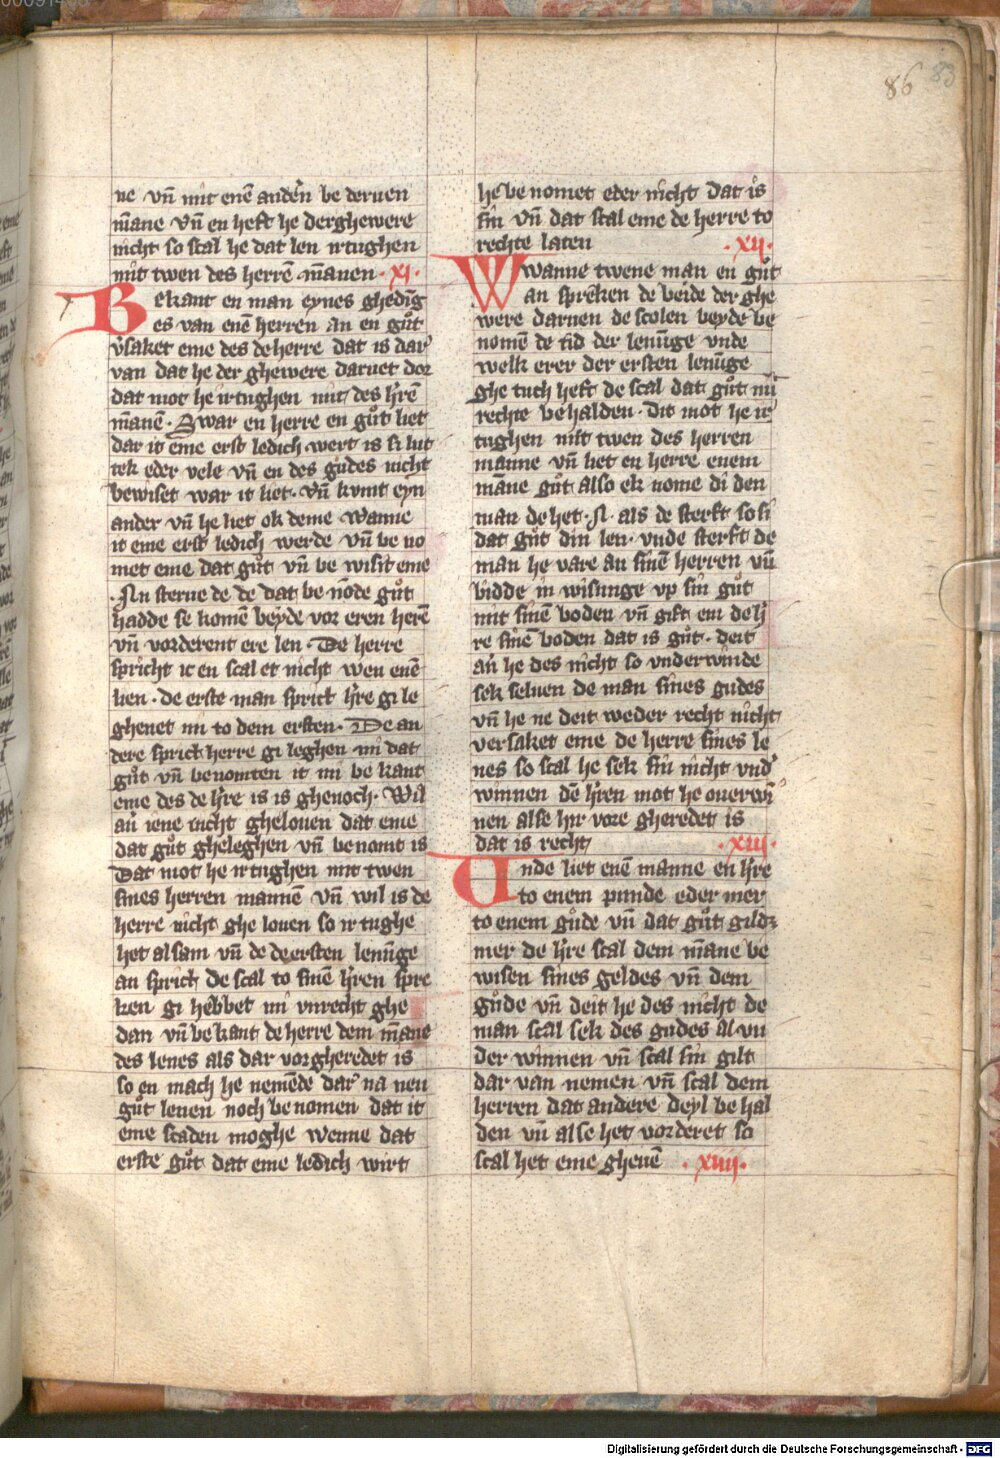 86 83
ne vn̄ mit enē andern be deruen
māne vn̄ en heft he derghewere
nicht so scal he dat len irtughen
mit twen des herrē māuen · xi ·
Bekant en man eynes ghedīg
es van enē herren an en gůt
v̓saket eme des de herre dat is dar
van dat he der ghewere daruet dor
dat mot he irtughen mit des h̓rē
mānē · Swar en herre en gůt liet
dar it ēme erst ledich wert is si lut
tek eder vele vn̄ en des gudes nicht
bewiset war it liet · vn̄ kvmt eyn
ander vn̄ he liet ok deme wanne
it eme erst ledich werde vn̄ be no
met eme dat gůt vn̄ be wisit eme
· Nu sterue de de dat be nōde gůt
hadde se komē beyde vor eren herē
vn̄ vorderent ere len · De herre
spricht ic en scal et nicht wen enē
lien · de erste man sprict h̓re gi le
ghenet mi to dem ersten · De an
dere sprict herre gi leghen mi dat
gůt vn̄ benomten it mi be kant
eme des de h̓re is is ghenoch · Wil
au̓ iene nicht ghelouen dat eme
dat gůt gheleghen vn̄ benomt is
Dat mot he irtughen mit twen
sines herren mannē vn̄ wil is de
herre nicht ghe louen so irtughe
het alsam vn̄ de de ersten lenūge
an sprich de scal to sinē h̓ren spre
ken gi hebbet mi vnrecht ghe
dan vn̄ be kant de herre dem māne
des lenes als dar vorgheredet is
so en mach he nemēde dar na neu
gůt leuen noch be nomen dat it
eme scaden moghe wenne dat
erste gůt dat eme ledich wirt
he be nomet eder nicht dat is
sin vn̄ dat scal eme de herre to
rechte laten · xij ·
Wwanne twene man en gůt
an sprēken de beide der ghe
were daruen de scolen beyde be
nomē de tid der lenūge vnde
welk erer der ersten lenūge
ghe tuch heft de scal dat gůt mi
rechte be halden · Dit mot he ir
tughen mit twen des herren
manne vn̄ liet en herre enem
māne gůt also ek nome di den
man de het · N · als de sterft so si
dat gůt din len · vnde sterft de
man he vare an sinē herren vn̄
bidde in wisunge vp sin gůt
mit sinē boden vn̄ gift em de h̓
re sinē boden dat is gůt · deit
au̓ he des nicht so vnderwinde
sek seluen de man sines gudes
vn̄ he ne deit weder recht nicht
versaket eme de herre sines le
nes so scal he sek sin nicht vnd̓
winnen dē h̓ren mot he ouerwī
nen alse hir vore gheredet is
dat is recht · xiii ·
Unde liet enē manne en h̓re
to enem punde eder mer
to enem gůde vn̄ dat gůt gildꝫ
mer de h̓re scal dem māne be
wisen sines geldes vn̄ dem
gůde vn̄ deit he des nicht de
man scal sek des gudes al vn
der winnen vn̄ scal sin gilt
dar van nemen vn̄ scal dem
herren dat andere deyl be hal
den vn̄ alse het vorderet so
scal het eme gheuē · xiiij ·
Digitalisierung gefördert durch die Deutsche Forschungsgemeinschaft - DFG